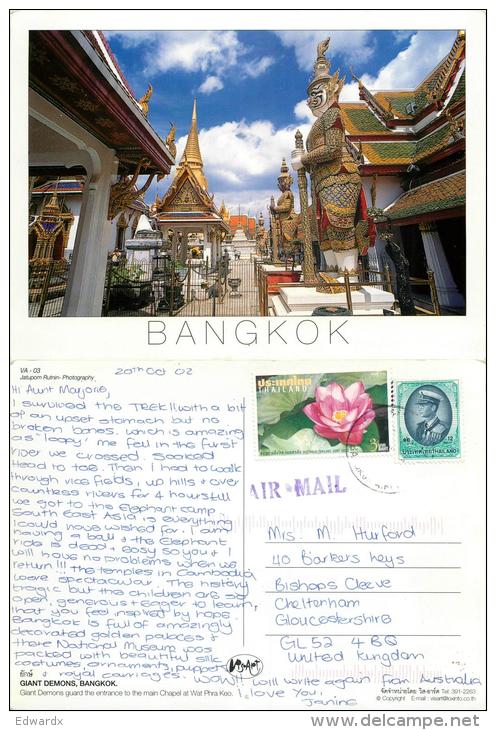 BANGKOK
VA - 03
Jatuporn Rutnin- Photography
20th Oct 02
Hi Aunt Marjorie,
I survived the TREK!! with a bit
of an upset stomach but no
broken bones which is amazing
as "loopy" me fell in the first
river we crossed. Soaked
Head to toe. Then I had to walk
through rice fields, up hills & over
countless rivers for 4 hours till
we got to the Elephant camp.
South East Asia is everything
I could have wished for. I am
having a ball & the Elephant
ride is dead easy so you
will have no problems when we
return!!! The temples in Cambodia
were spectacular. The history
tragic but the children are so
open, generous & eager to learn,
that you feel inspired by hope.
Bangkok is full of amazingly
decorated golden palaces &
there National Museum was
packed with beautiful silk
costumes, ornaments, puppets
& royal carriages. WOW!! will write again from Australia
I love you,
Janine
ประเทศไทย
THAILAND
3
BAHT
12
ประเทศไทย THAILAND
AIR MAIL
Mrs. M. Hurford
40 Barkers Leys
Bishops Cleeve
Cheltenham
Gloucestershire
GL52 4BQ
United Kingdom
VisArt
ยักษ์
GIANT DEMONS, BANGKOK.
Giant Demons guard the entrance to the main Chapel at Wat Phra Keo.
จัดจำหน่ายโดย วิส-อาร์ต Tel. 391-2263
© Copyright E-mail : visart@loxinfo.co.th
Edwardx
delcampe.net